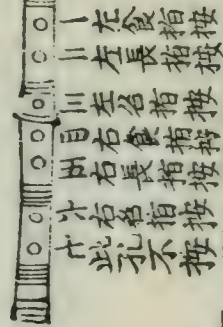 一左食指按
二左長指按
三左名指按
四右食指按
五右長指按
六右名指按
七此孔不按